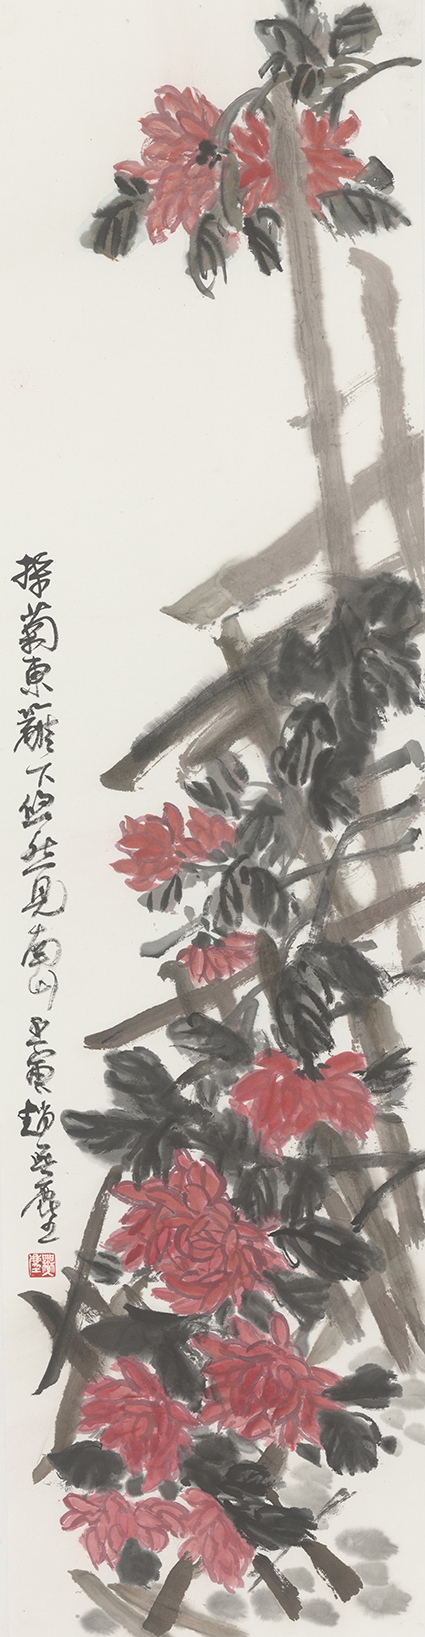 採菊東籬下悠然見南山壬寅趙無塵